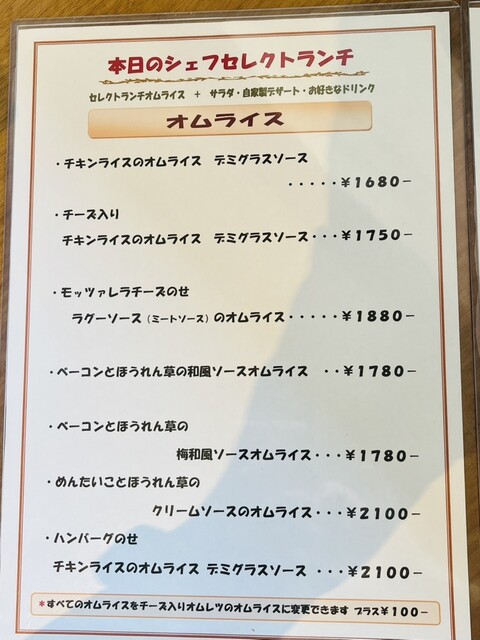 本日のシェフセレクトランチ
セレクトランチオムライス + サラダ・自家製デザート・お好きなドリンク
オムライス
・チキンライスのオムライス デミグラスソース
・・・・・¥1680−
・チーズ入り
チキンライスのオムライス デミグラスソース・・・¥1750−
・モッツァレラチーズのせ
ラグーソース(ミートソース)のオムライス・・・・・¥1880−
・ベーコンとほうれん草の和風ソースオムライス ・・¥1780−
・ベーコンとほうれん草の
梅和風ソースオムライス・・・¥1780−
・めんたいことほうれん草の
クリームソースのオムライス・・・¥2100−
・ハンバーグのせ
チキンライスのオムライス デミグラスソース ・・・¥2100−
*すべてのオムライスをチーズ入りオムレツのオムライスに変更できます プラス¥100−